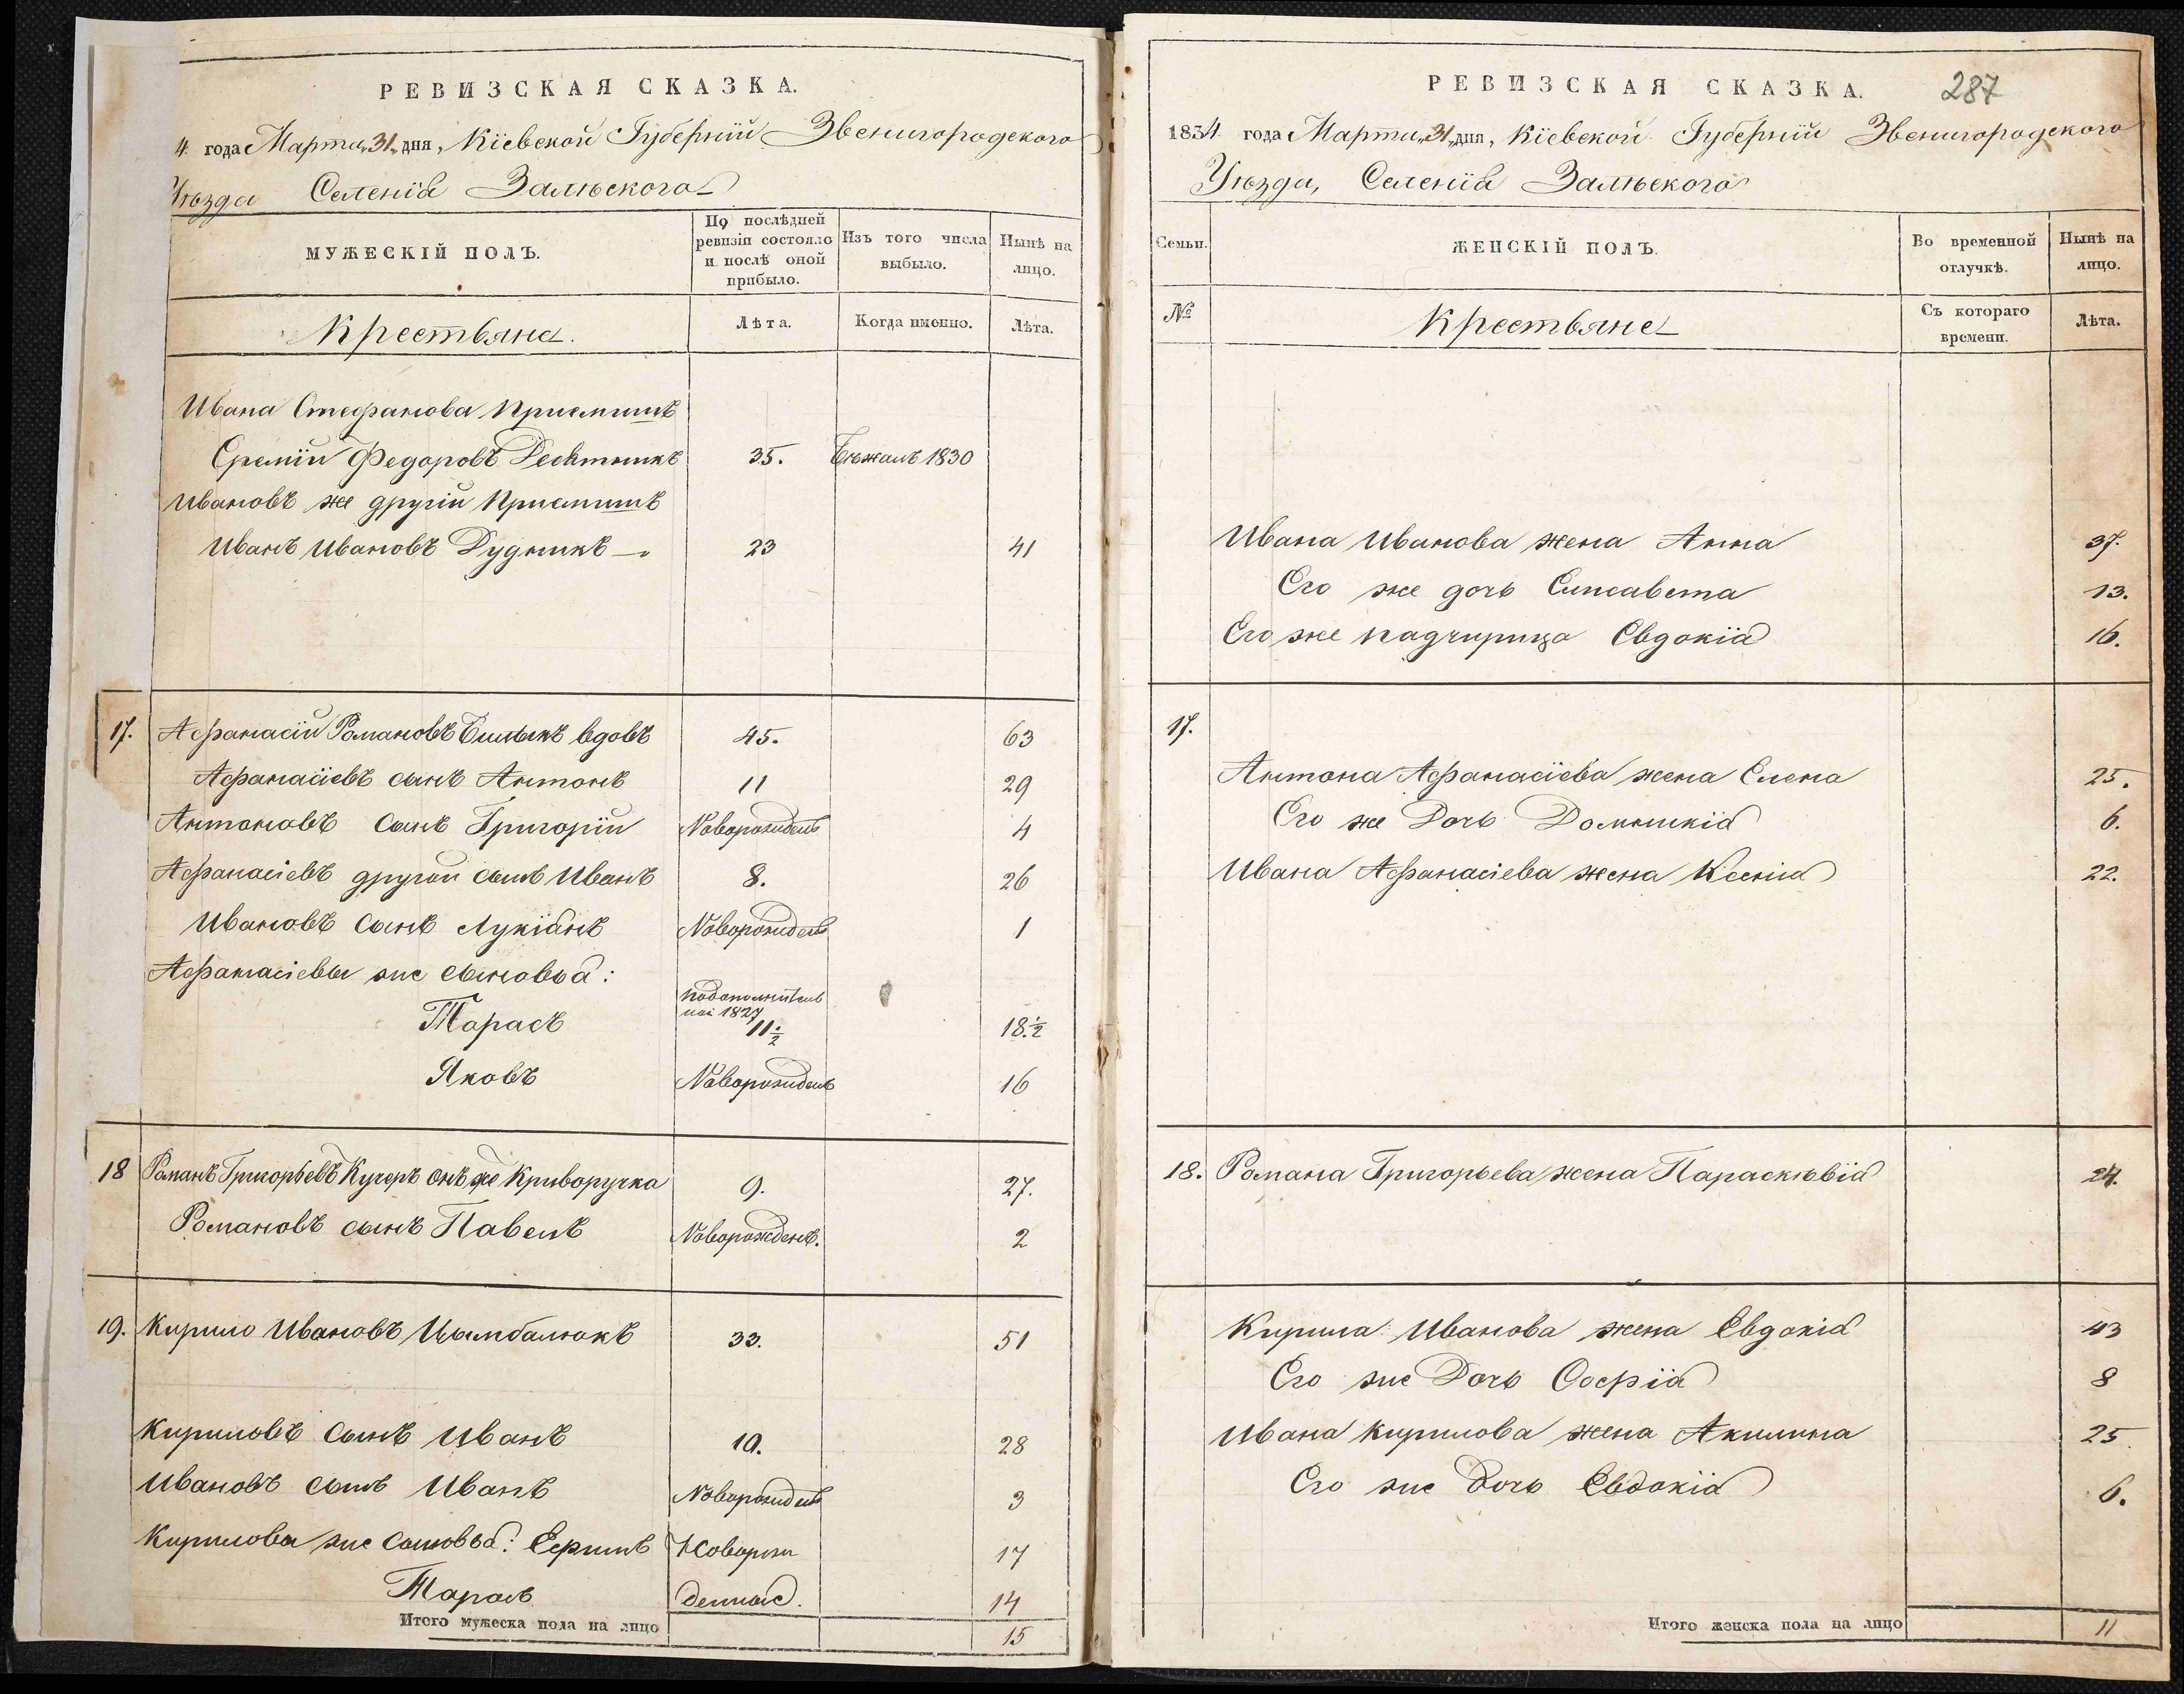 РЕВИЗСКАЯ СКАЗКА.
4 года Марта „31„ дня, Кіевской Губерніи Звенигородского
Уѣзда Селенія Залѣского
МУЖЕСКІЙ ПОЛЪ.
По послѣдней ревизіи состояло и послѣ оной прибыло.
Изъ того числа выбыло.
Нынѣ на лицо.
Крестьяне.
Лѣта.
Когда именно.
Лѣта.
Ивана Стефанова приемишъ
Еремій Федоровъ 35. Бѣжалъ 1830
Ивановъ же другій приемишъ
Иванъ Ивановъ Дудникъ 23 41
17. Афанасій Романовъ вдовъ 45. 63
Афанасіевъ сынъ Антонъ 11 29
Антоновъ сынъ Григорій Новорожденъ 4
Афанасіевъ другой сынъ Иванъ 8. 26
Ивановъ сынъ Лукіанъ Новорожденъ 1
Афанасіевы же сыновья:
1827
Тарасъ 11½ 18.½
Яковъ Новорожденъ 16
18 Романъ Григорьевъ Кучеръ онъ же Криворучка 9. 27.
Романовъ сынъ Павелъ Новорожденъ. 2
19. Кирило Ивановъ Цымбалюкъ 33. 51
Кириловъ сынъ Иванъ 10. 28
Ивановъ сынъ Иванъ Новорожденъ 3
Кирилова же сыновья: Ефимъ Новорож 17
Тарасъ денные. 14
Итого мужеска пола на лицо 15
РЕВИЗСКАЯ СКАЗКА. 287
1834 года Марта „31„ дня, Кіевской Губерніи Звенигородского
Уѣзда, Селенія Залѣского
Семьи.
ЖЕНСКІЙ ПОЛЪ.
Во временной отлучкѣ.
Нынѣ на лицо.
№
Крестьяне
Съ котораго времени.
Лѣта.
Ивана Иванова жена Анна 37.
Его же дочь Елисавета 13.
Его же падчирица Евдокія 16.
17.
Антона Афанасіева жена Елена 25.
Его же Дочь Домникія 6.
Ивана Афанасіева жена Ксенія 22.
18. Романа Григорьева жена Параскѣвія 24.
Кирила Иванова жена Евдокія 43
Его же Дочь Софія 8
Ивана Кирилова жена Акилина 25.
Его же Дочь Евдокія 6.
Итого женска пола на лицо 11